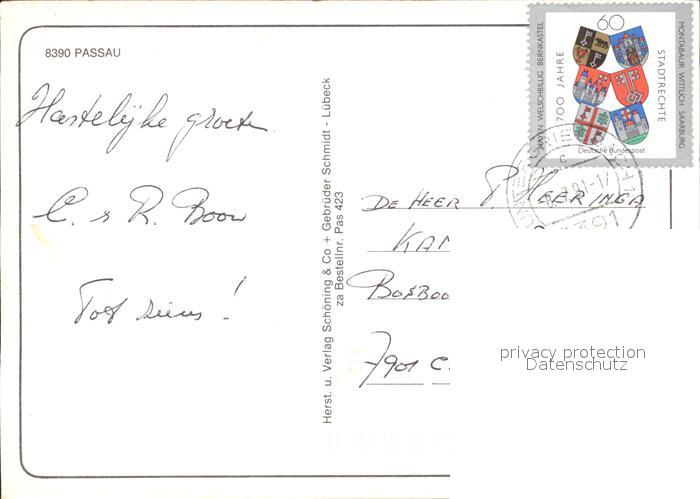 8390 PASSAU
Hartelijke groeten
C. & R. Boon
Tot ziens!
Herst. u. Verlag Schöning & Co + Gebrüder Schmidt - Lübeck
za Bestellnr. Pas 423
60
MAYEN WELSCHBILLIG BERNKASTEL
MONTABAUR WITTLICH SAARBURG
700 JAHRE
STADTRECHTE
Deutsche Bundespost
DE HEER P. HEERINGA
KAN
BOSBOO
7901 C.
privacy protection
Datenschutz